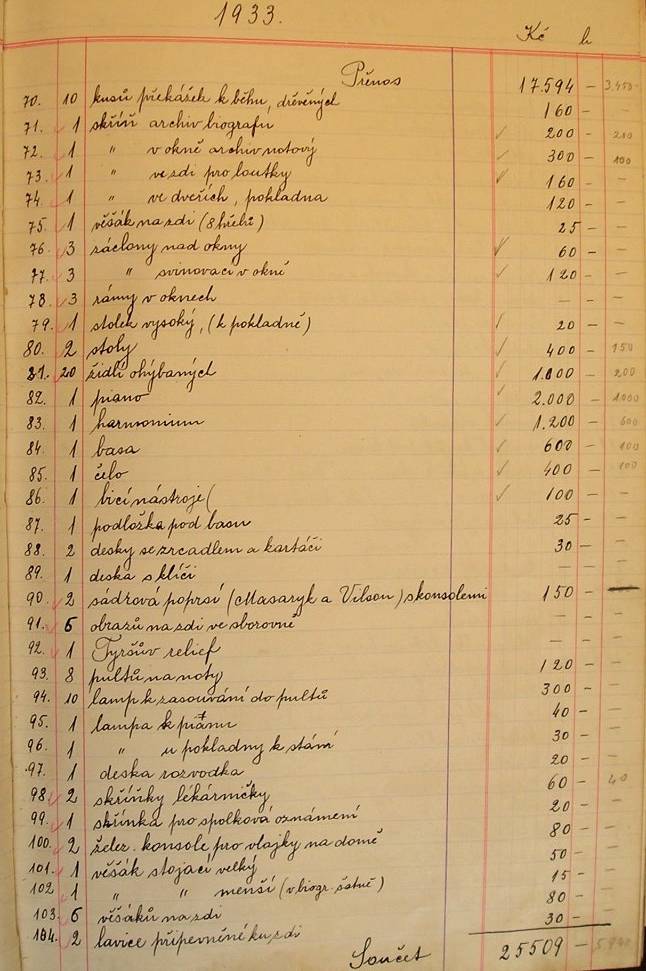 1933.
Kč h
Přenos 17.594 – 3.450-
70. 10 kusů překážek k běhu, dřevěných 160 –
71. 1 skříň archiv biografu 200 – 200
72. 1 " v okně archiv notový 300 – 100
73. 1 " ve zdi pro loutky 160 –
74. 1 " ve dveřích, pokladna 120 –
75. 1 věšák na zdi (8 hřebů) 25 –
76. 3 záclony nad okny 60 –
77. 3 " svinovací v okně 120 –
78. 3 rámy v oknech — –
79. 1 stolek vysoký, (k pokladně) 20 –
80. 2 stoly 400 – 150
81. 20 židlí ohýbaných 1.000 – 200
82. 1 piano 2.000 – 1000
83. 1 harmonium 1.200 – 600
84. 1 basa 600 – 100
85. 1 čelo 400 – 100
86. 1 bicí nástroje ( 100 –
87. 1 podložka pod basu 25 –
88. 2 desky se zrcadlem a kartáči 30 –
89. 1 deska s klíči — –
90. 2 sádrová poprsí (Masaryk a Vilson) s konsolemi 150 – —
91. 6 obrazů na zdi ve sborovně — –
92. 1 Tyršův relief — –
93. 8 pultů na noty 120 –
94. 10 lamp k zasouvání do pultů 300 –
95. 1 lampa k pianu 40 –
96. 1 " u pokladny k stání 30 –
97. 1 deska rozvodka 20 –
98. 2 skříňky lékárničky 60 – 40
99. 1 skřínka pro spolková oznámení 20 –
100. 2 želez. konsole pro vlajky na domě 80 –
101. 1 věšák stojací velký 50 –
102 1 " " menší (v biogr. šatně) 15 –
103. 6 věšáků na zdi 80 –
104. 2 lavice připevněné ku zdi 30 –
Součet 25509 – 5940